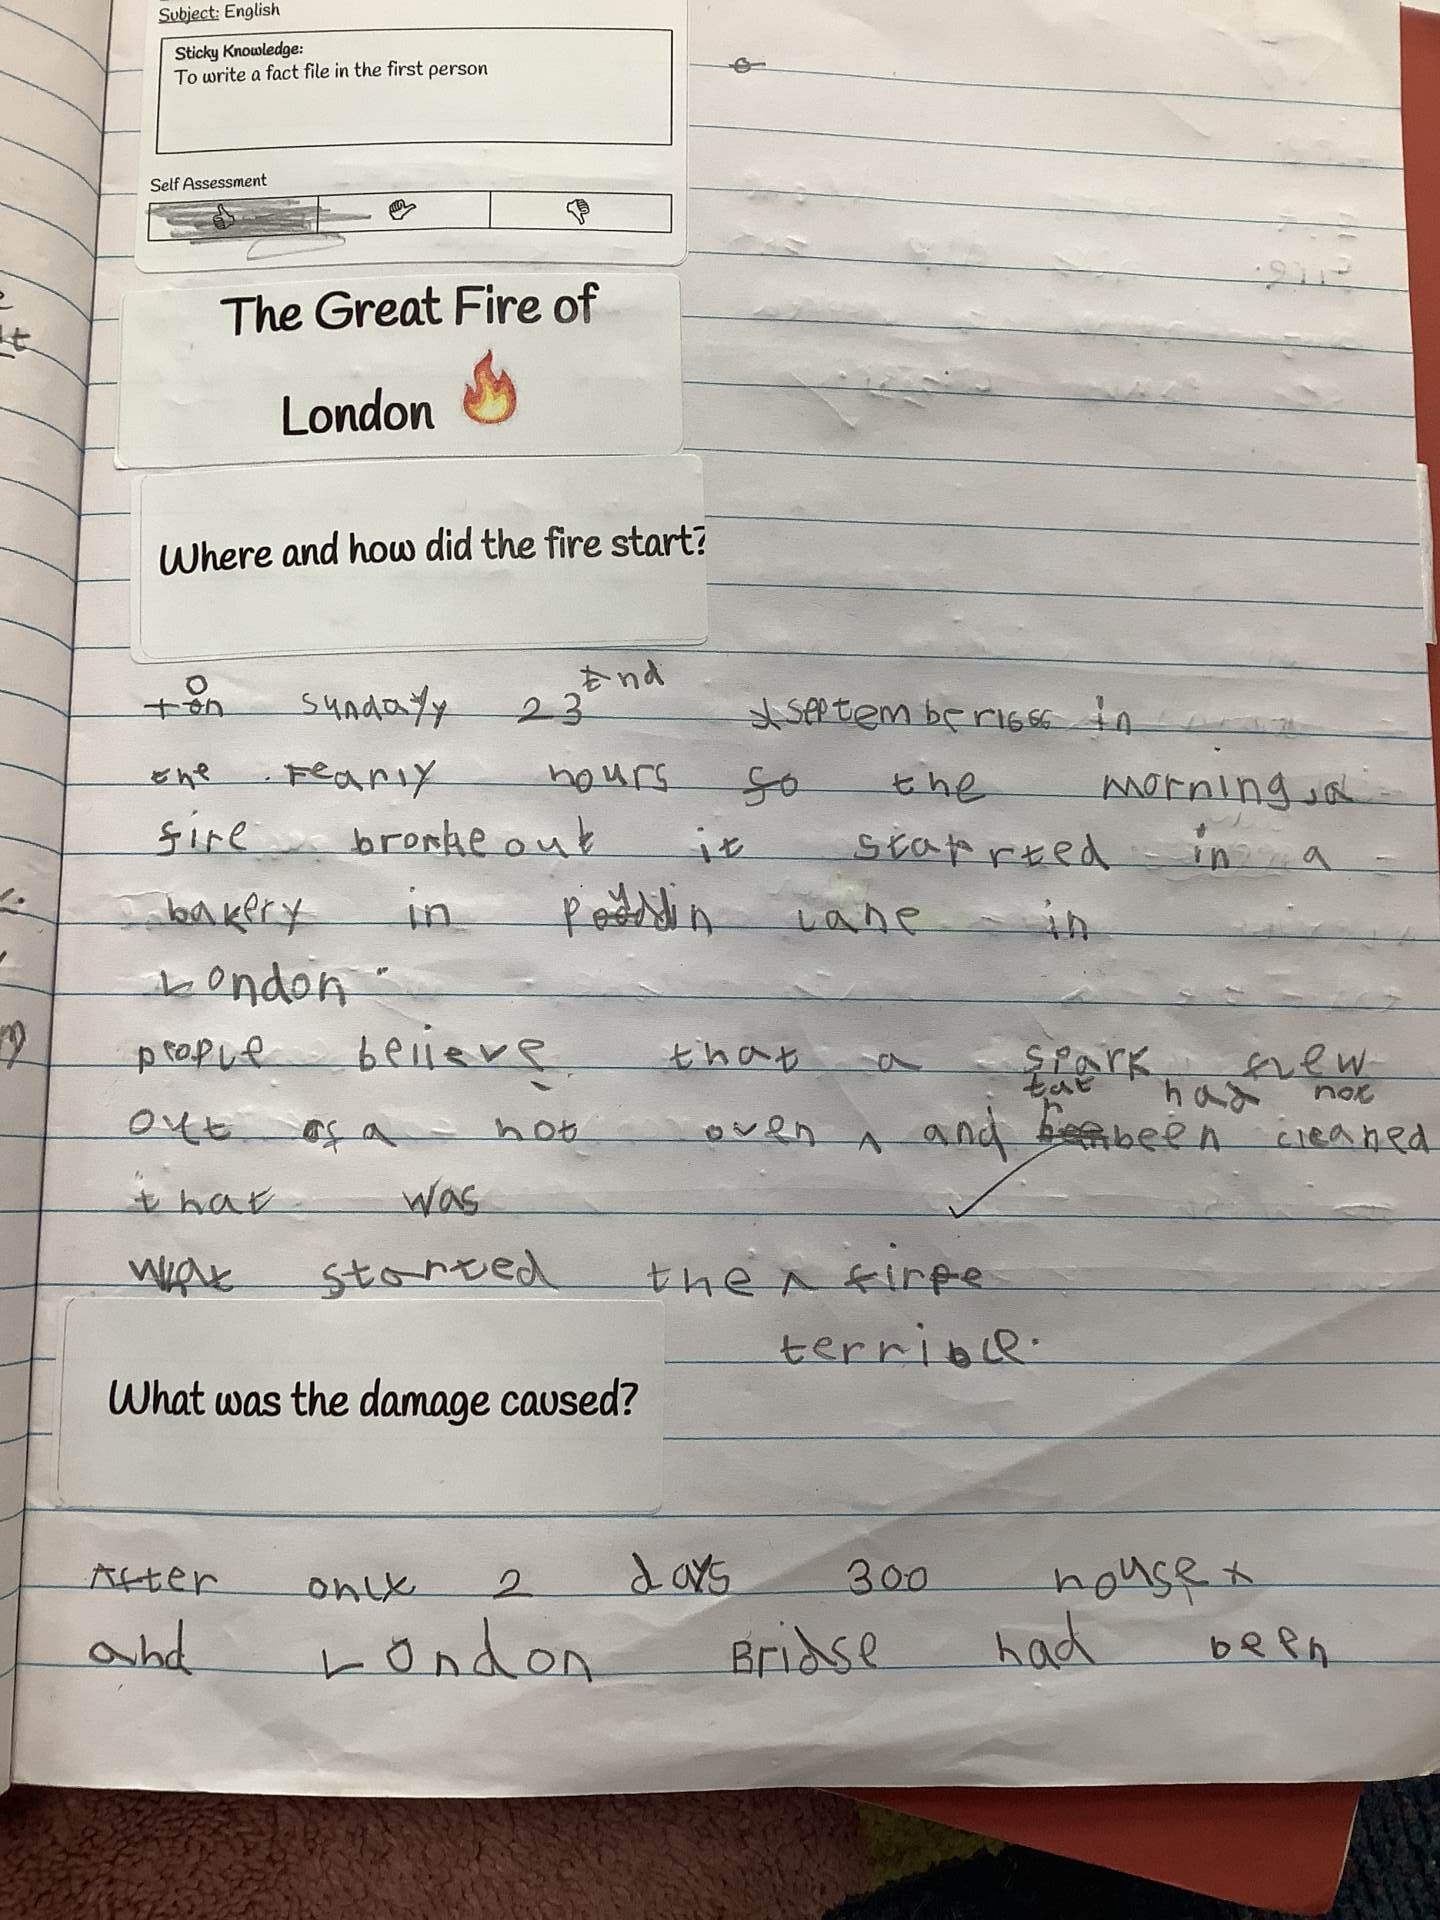 Subject: English
Sticky Knowledge:
To write a fact file in the first person
Self Assessment
The Great Fire of
London 🔥
Where and how did the fire start?
on Sunday 2nd September 1666 in
the early hours fo the morning, a
fire broke out it starrted in a
bakery in Puddin Lane in
London.
people believe that a spark flew
tat had not
out of a hot oven ^ and been cleaned
that was
what started the ^ fire
terrible.
What was the damage caused?
After only 2 days 300 house
and London Bridge had been